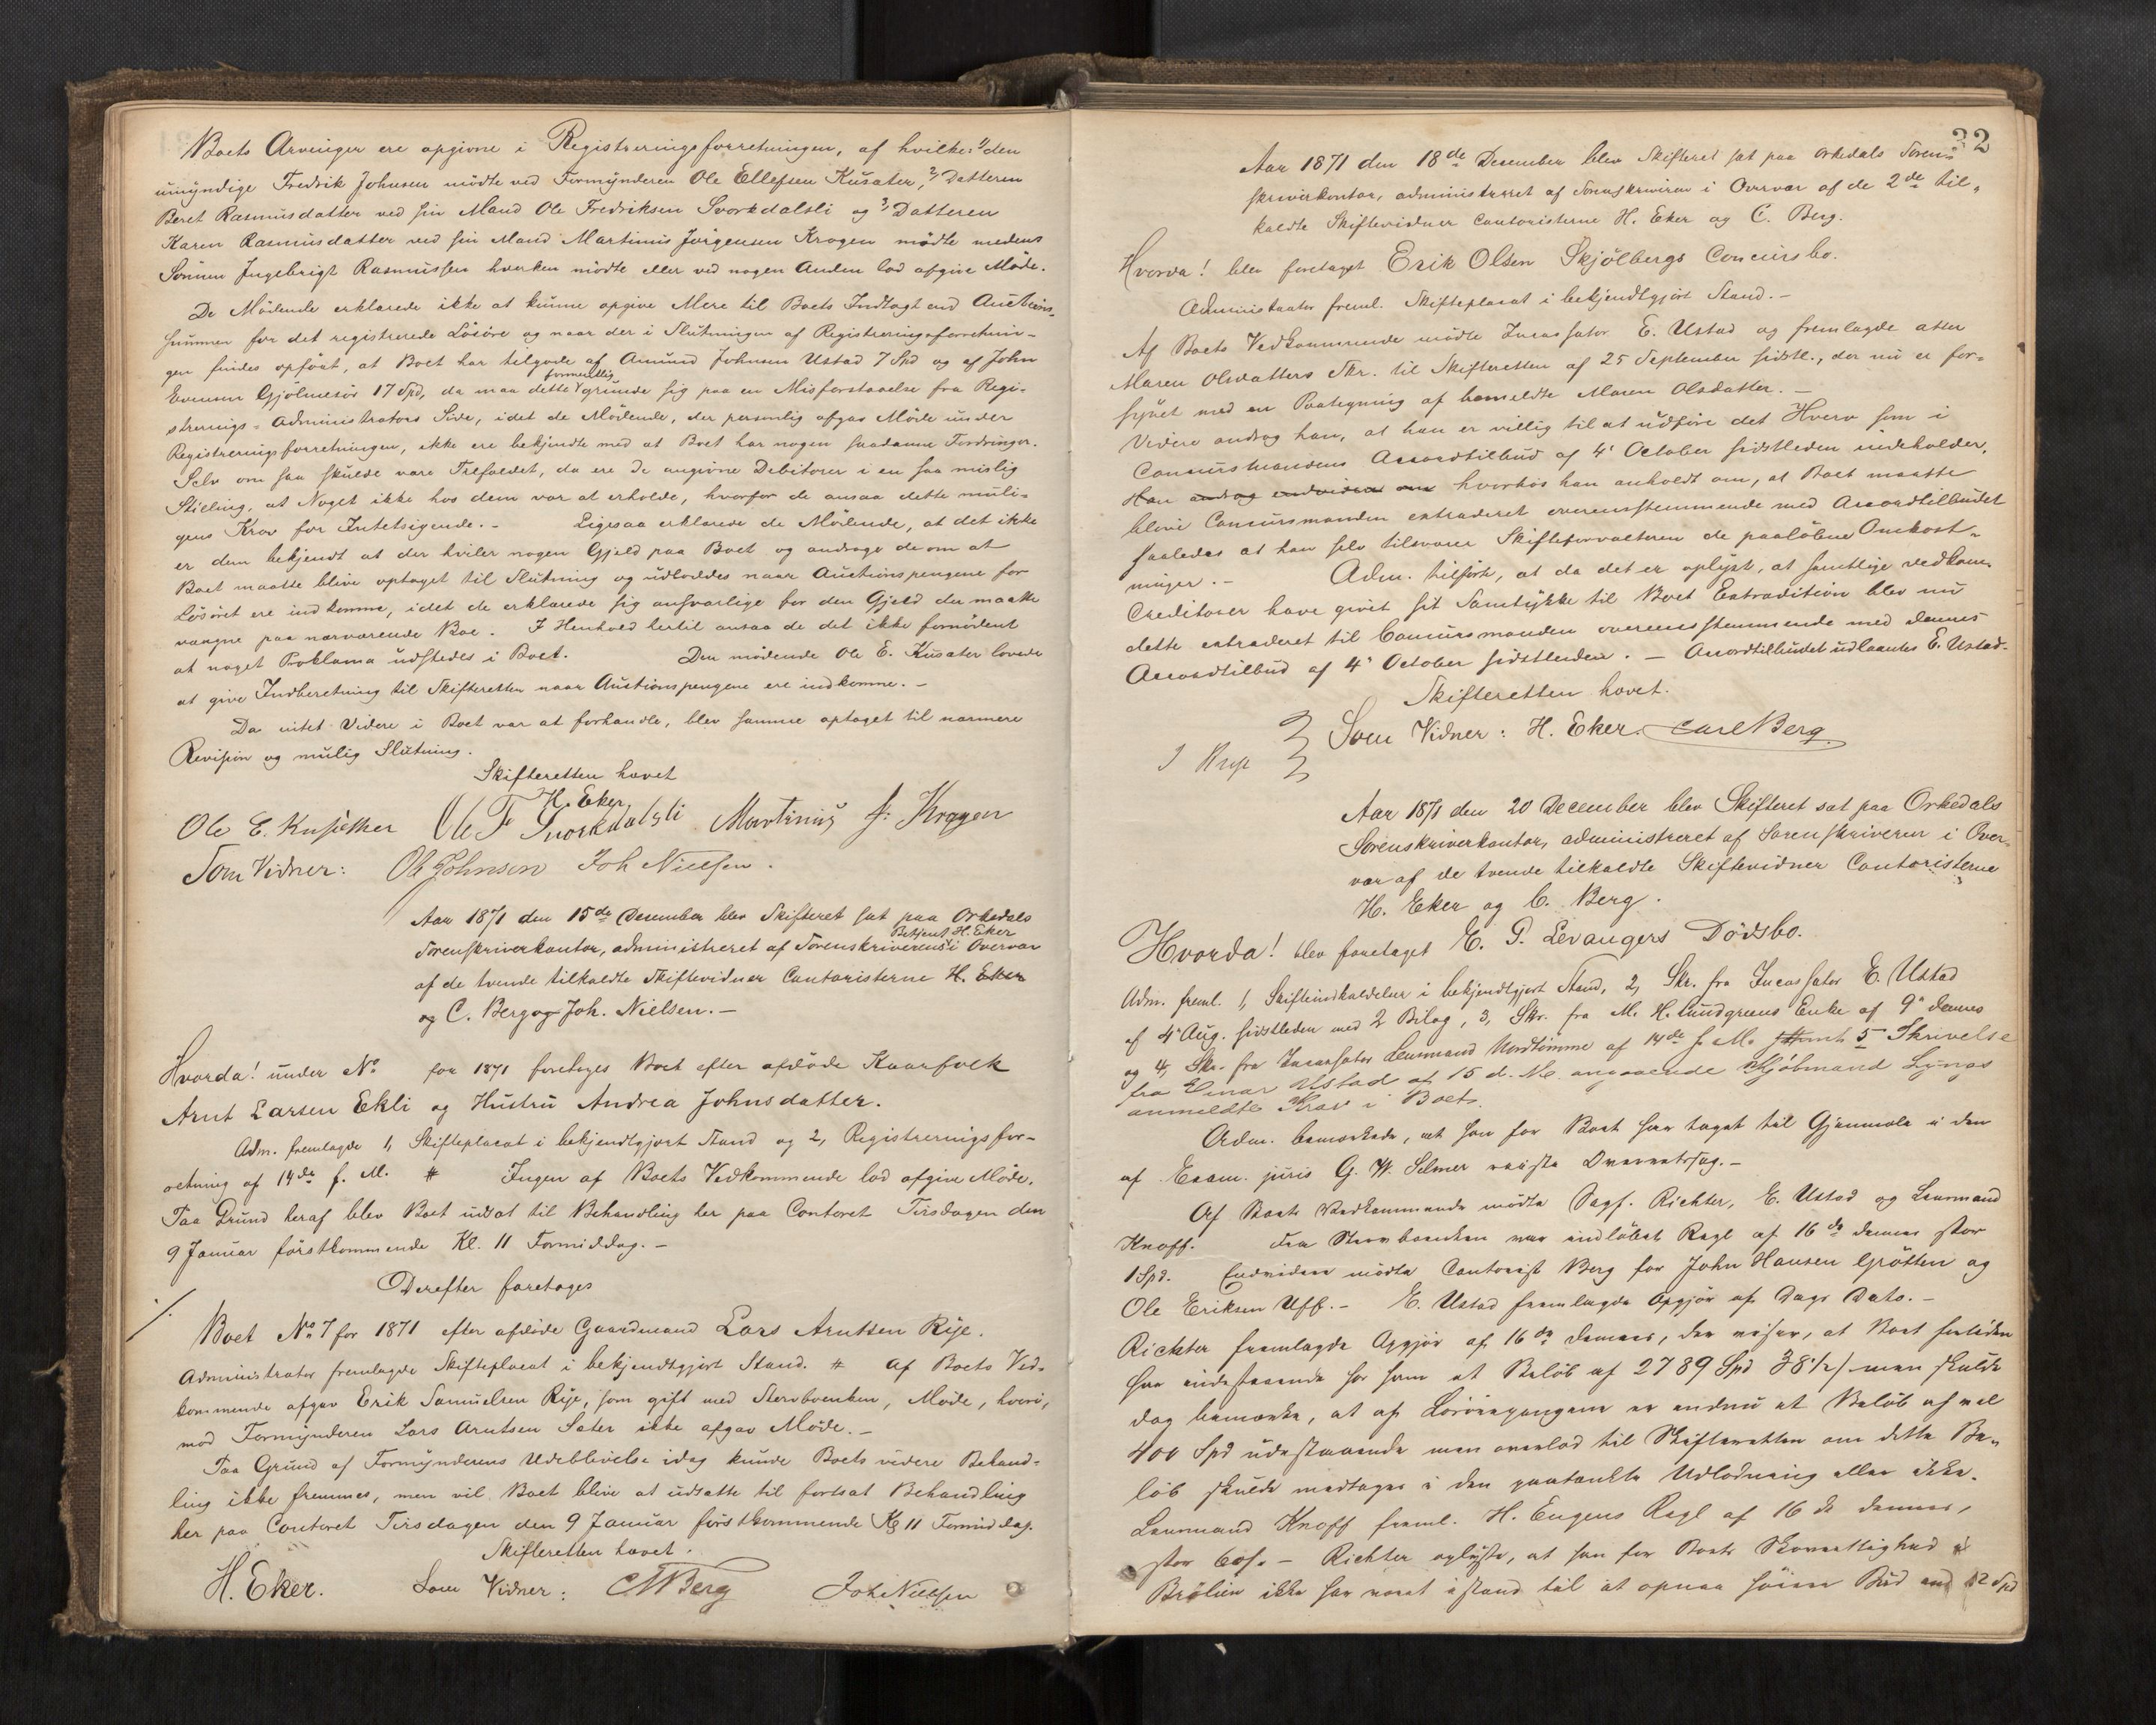 Boets Arvinger ere opgivne i Registreringsforretningen, af hvilke: 1/ den
umyndige Fredrik Johnsen mödte ved Formynderen Ole Ellefsen Kusater, 2/ Datteren
Beret Rasmusdatter ved sin Mand Ole Fredriksen Svorkdalsli og 3/ Datteren
Karen Rasmusdatter ved sin Mand Martinus Jörgensen Krogen mödte medens
Sönnen Ingebrigt Rasmussen hverken mödte eller ved nogen Anden lod afgive Möde.
De Mödende erklærede ikke at kunne opgive Mere til Boets Indtægt end Auctions-
summen for det registrerede Lösöre og naar der i Slutningen af Registreringsforretnin-
gen findes opfört, at Boet har tilgode af Amund Johnsen Ustad 7 Spd og af John
Evensen Gjölmesör 17 Spd, da maa dette formentlig grunde sig paa en Misforstaaelse fra Regi-
strerings-Administrators Side, idet de Mödende, der personlig afgav Möde under
Registreringsforretningen, ikke ere bekjendte med at Boet har nogen saadanne Fordringer.
Selv om saa skulde være Tilfældet, da ere de angivne Debitorer i en saa mislig
Stilling, at Noget ikke hos dem var at erholde, hvorfor de ansaa dette muli-
gens Krav for Intetsigende. - Ligesaa erklærede de Mödende, at det ikke
er dem bekjendt at der hviler nogen Gjæld paa Boet og androge de om at
Boet maatte blive optaget til Slutning og udloddes naar Auctionspengene for
Lösöret ere indkomne, idet de erklærede sig ansvarlige for den Gjæld der maatte
vaagne paa nærværende Boe. I Henhold hertil ansaa de det ikke fornödent
at noget Proklama udstedes i Boet. Den mödende Ole E. Kusater lovede
at give Indberetning til Skifteretten naar Auctionspengene ere indkomne. -
Da intet Videre i Boet var at forhandle, blev samme optaget til nærmere
Revision og mulig Slutning.
Skifteretten hævet
H. Eker
Ole E. Kusæther Ole F Svorkdalsli Martinus J: Krogen
Som Vidner: Ole Johnson Joh Nielsen.
Aar 1871 den 15de December blev Skifteret sat paa Orkedals
Sorenskriverkontor, administreret af Sorenskriverens Betjent H. Eker i Overvær
af de tvende tilkaldte Skiftevidner Contoristerne H. Eker
og C. Berg og Joh. Nielsen. -
Hvorda! under No for 1871 foretoges Boet efter afdöde Kaarfolk
Arnt Larsen Ekli og Hustru Andrea Johnsdatter.
Adm. fremlagde 1, Skifteplacat i bekjendtgjort Stand og 2, Registreringsfor-
retning af 14de f. M. # Ingen af Boets Vedkommende lod afgive Möde.
Paa Grund heraf blev Boet udsat til Behandling her paa Contoret Tirsdagen den
9 Januar förstkommende Kl. 11 Formiddag. -
Derefter foretoges
Boet No 7 for 1871 efter afdöde Gaardmand Lars Arntsen Rije.
Administrator fremlagde Skifteplacat i bekjendtgjort Stand. # Af Boets Ved-
kommende afgav Erik Samuelsen Rije, som gift med Stervboenken, Möde, hvori-
mod Formynderen Lars Arntsen Sæter ikke afgav Möde. -
Paa Grund af Formynderens Udeblivelse idag kunde Boets videre Behand-
ling ikke fremmes, men vil Boet blive at udsætte til fortsat Behandling
her paa Contoret Tirsdagen den 9 Januar förstkommende Kl 11 Formiddag.
Skifteretten hævet.
H. Eker. Som Vidner: C M Berg Joh Nielsen
32
Aar 1871 den 18de December blev Skifteret sat paa Orkedals Soren-
skriverkontor, administreret af Sorenskriveren i Overvær af de 2de til-
kaldte Skiftevidner Contoristerne H. Eker og C. Berg.
Hvorda! blev foretaget Erik Olsen Skjölbergs Concursbo.
Administrator freml. Skifteplacat i bekjendtgjort Stand. -
Af Boets Vedkommende mödte Incassator E. Ustad og fremlagde atter
Maren Olsdatters Skr. til Skifteretten af 25 September sidstl., der nu er for-
synet med en Paategning af bemeldte Maren Olsdatter. -
Videre androg han, at han er villig til at udföre det Hverv som i
Concursmandens Accordtilbud af 4' October sidstleden indeholder,
Han androg endvidere om hvorhos han anholdt om, at Boet maatte
blive Concursmanden extraderet overensstemmende med Accordtilbudet
saaledes at han selv tilsvarer Skifteforvalteren de paalöbne Omkost-
ninger. - Adm. tilförte, at da det er oplyst, at samtlige vedkom.
Creditorer have givet sit Samtykke til Boet Extradition blev nu
dette extraderet til Concursmanden overensstemmende med dennes
Accordtilbud af 4' October sidstleden. - Accordtilbudet udlaantes E. Ustad.
Skifteretten hævet.
Som Vidner: H. Eker. Carl Berg
Aar 1871 den 20 December blev Skifteret sat paa Orkedals
Sorenskriverkontor, administreret af Sorenskriveren i Over-
vær af de tvende tilkaldte Skiftevidner Contoristerne
H. Eker og C. Berg.
Hvorda! blev foretaget E. P. Levangers Dödsbo.
Adm. freml. 1, Skifteindkaldelser i bekjendtgjort Stand, 2, Skr. fra Incassator E. Ustad
af 4' Aug. sidstleden med 2 Bilag, 3, Skr. fra M. H. Lundgreens Enke af 9' dennes
og 4, Skr. fra Incassator Lensmand Nordtömme af 14de f. M. samt 5 Skrivelse
fra Einar Ustad af 15 d. M. angaaende Kjöbmand Lyngs
anmeldte Krav i Boet.
Adm. bemærkede, at han for Boet har taget til Gjenmæle i den
af Exam. juris G. W. Selmer reiste Overretssag. -
Af Boets Vedkommende mödte Sagf. Richter, E. Ustad og Lensmand
Knoff. Fra Stervboenken var indlöbet Regl af 16de dennes stor
1 Spd. Endvidere mödte Contorist Berg for John Hansen Grötten og
Ole Eriksen Uff. - E. Ustad fremlagde Opgjör af Dags Dato. -
Richter fremlagde Opgjör af 16de dennes, der viser, at Boet forinden
har indestaaende hos ham et Belöb af 2789 Spd 38 1/2 s men skulde
dog bemærke, at af Lösörepengene er endnu et Belöb af vel
400 Spd udestaaende men overlod til Skifteretten om dette Be-
löb skulde medtages i den paatænkte Udlodning eller ikke.
Lensmand Knoff freml. H. Eugens Regl af 16de dennes,
stor 60 s. - Richter oplyste, at han for Boets Skovrettighed i
Brölien ikke har været istand til at opnaa höiere Bud end 12 Spd